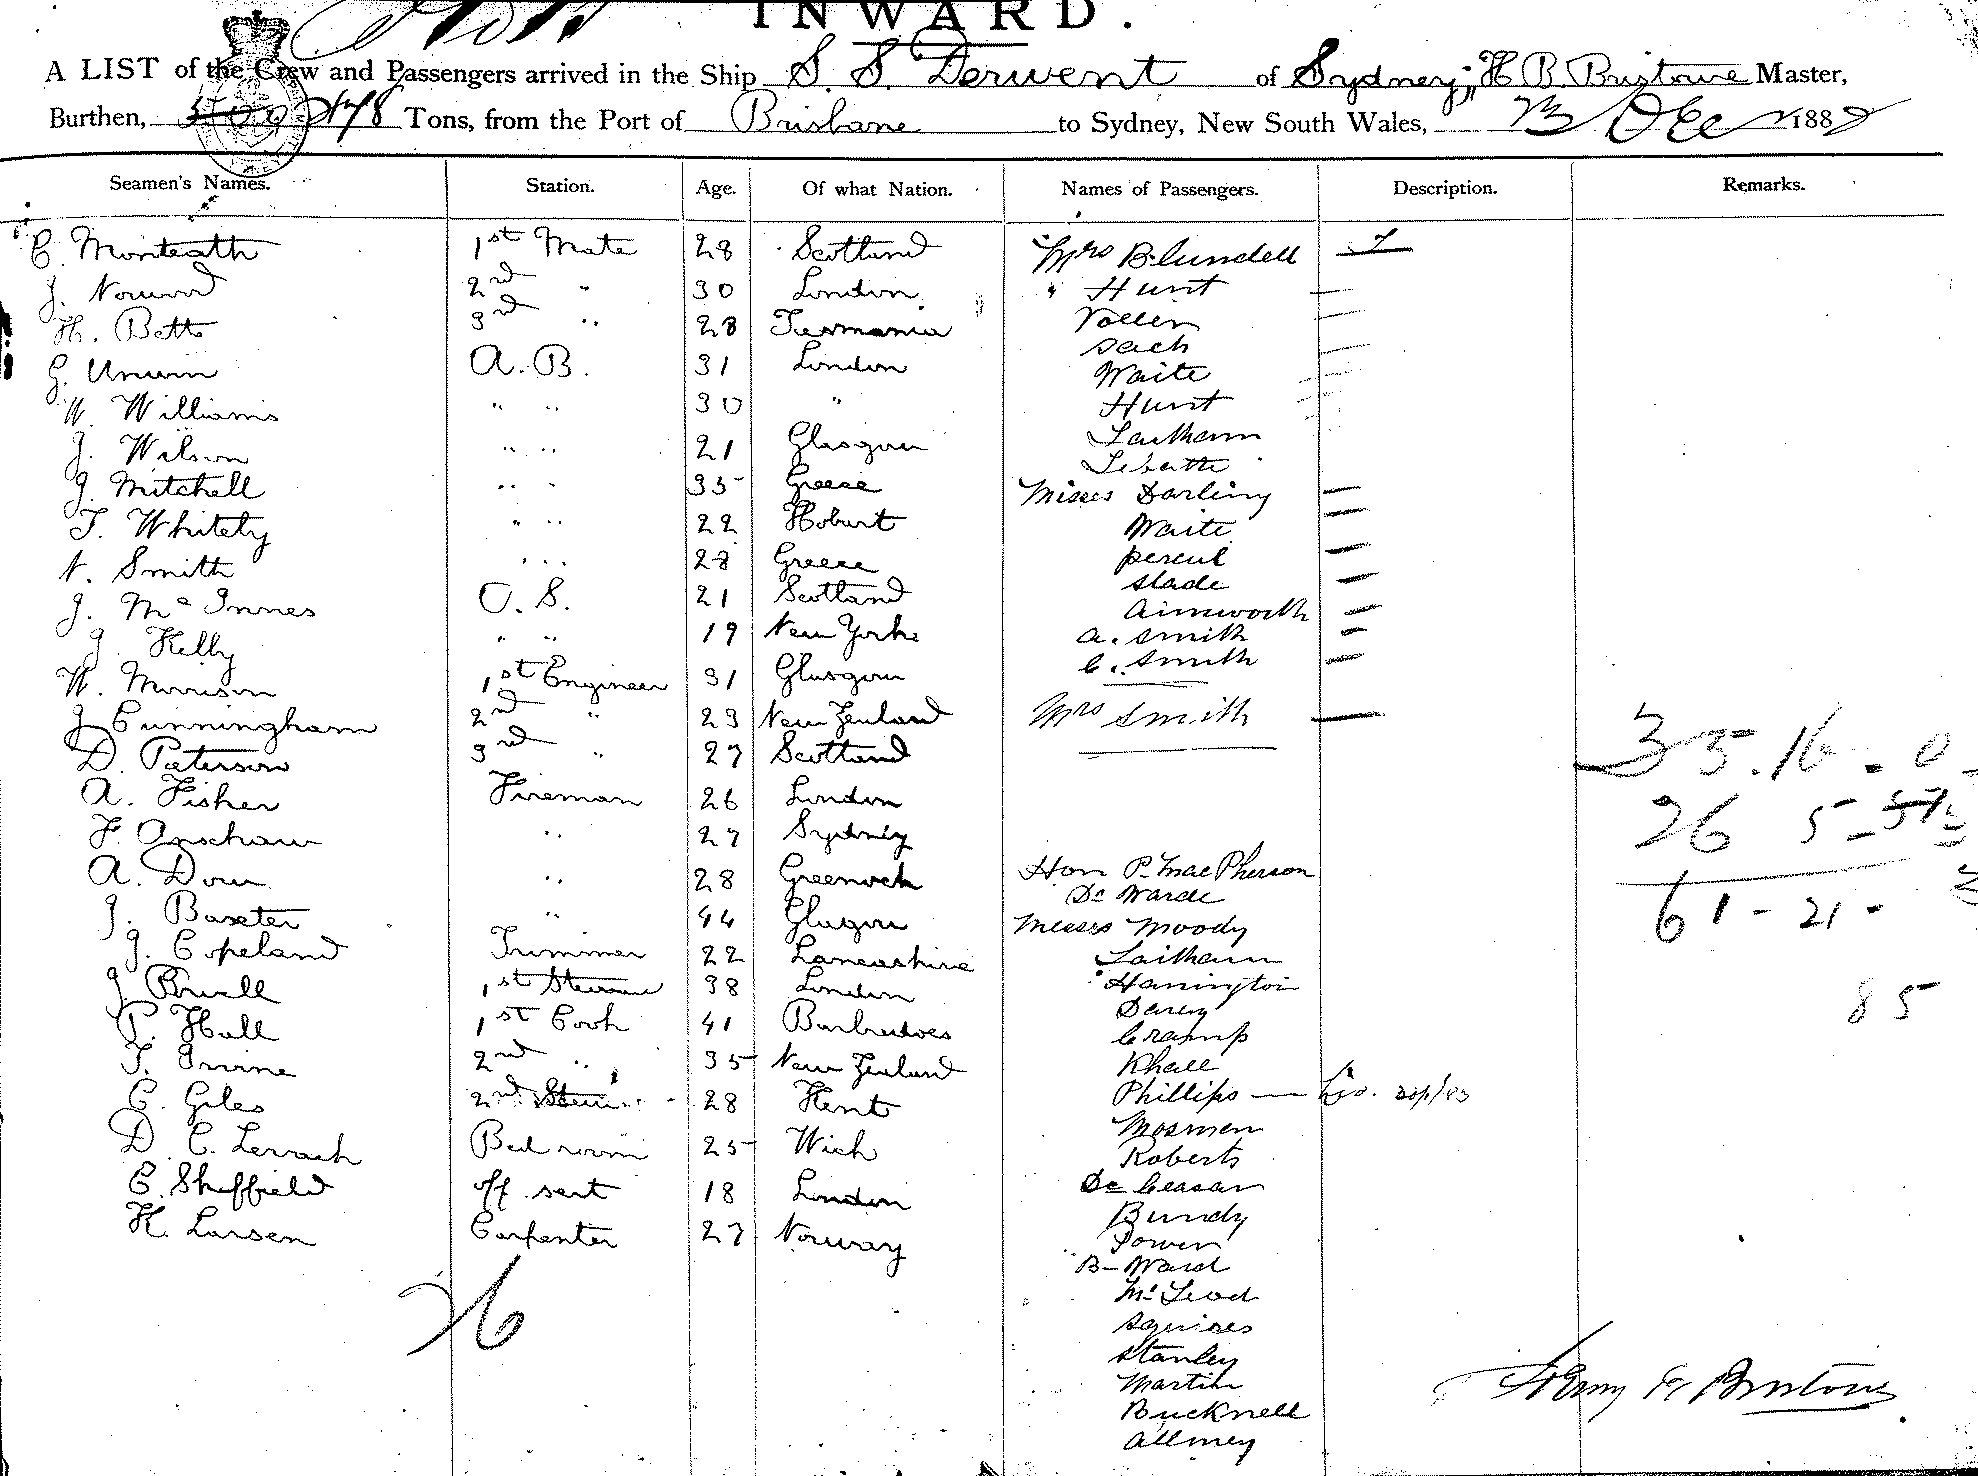 INWARD.
A LIST of the Crew and Passengers arrived in the Ship S. S. Derwent of Sydney, H B. Bristowe Master,
Burthen, 478 Tons, from the Port of Brisbane to Sydney, New South Wales, Dec 188
Seamen's Names. Station. Age. Of what Nation. Names of Passengers. Description. Remarks.
C. Monteath 1st Mate 28 Scotland Mrs Blundell
J. Norwood 2nd " 30 London " Hunt
H. Betts 3rd " 28 Tasmania Voller
G. Unwin A. B. 31 London Sach
Waite
W. Williams " " 30 " Hunt
J. Wilson " " 21 Glasgow
J. Mitchell " " 35 Greece Misses Darling
T. Whitely " " 22 Hobart Waite
N. Smith " " 28 Greece
Slade
J. McInnes O. S. 21 Scotland Ainsworth
J. Kelly " " 19 New York A. Smith
C. Smith
W. Morrison 1st Engineer 31 Glasgow
J Cunningham 2nd " 23 New Zealand Mrs Smith
D. Paterson 3rd " 27 Scotland
A. Fisher Fireman 26 London
F. " 27 Sydney
A. Dow " 28 Greenock Hon P. MacPherson
Dr Warde
J. Baxter " 44 Glasgow Messrs Moody
J. Copeland Trimmer 22 Lancashire
J Powell 1st 38 London Harrington
P. Hall 1st Cook 41 Barbadoes Cramp
T. Irvine 2nd " 35 New Zealand Khall
C. Giles 2nd 28 Kent Phillips
D. C. Lerrach Bedroom 25 Wick Mosmen
Roberts
C. Sheffield off. sert 18 London De Ceasar
H. Larsen Carpenter 27 Norway Bundy
Power
B- Ward
McLeod
Squires
Stanley
Martin
Bucknell
Allmey
26
35.16.0
26 5
61 - 21 -
85
Henry B Bristowe